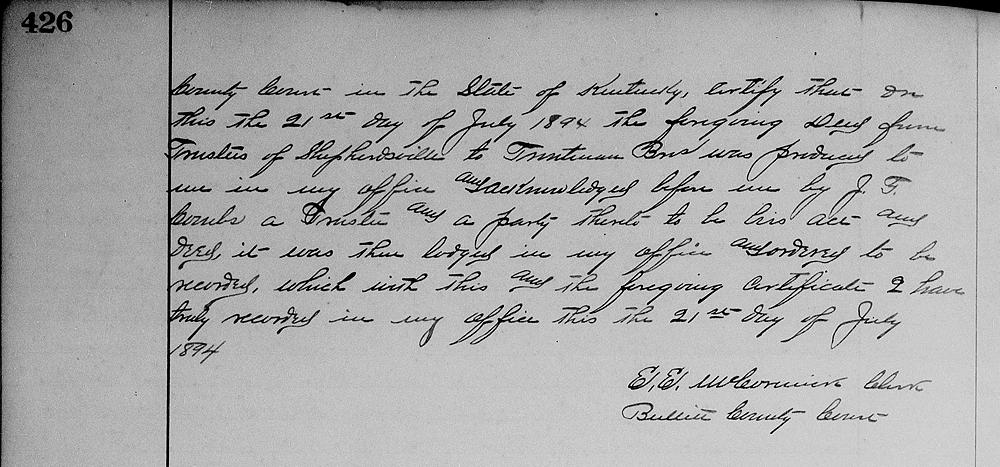 426
County Court in the State of Kentucky, certify that on
this the 21st day of July 1894 the foregoing Deed from
Trustees of Shepherdsville to Troutman Bros was produced to
me in my office and acknowledged before me by J. F.
Combs a Trustee and a party thereto to be his act and
Deed, it was then lodged in my office and ordered to be
recorded, which with this and the foregoing certificate I have
truly recorded in my office this the 21st day of July
1894
E. E. McCormick Clerk
Bullitt County Court